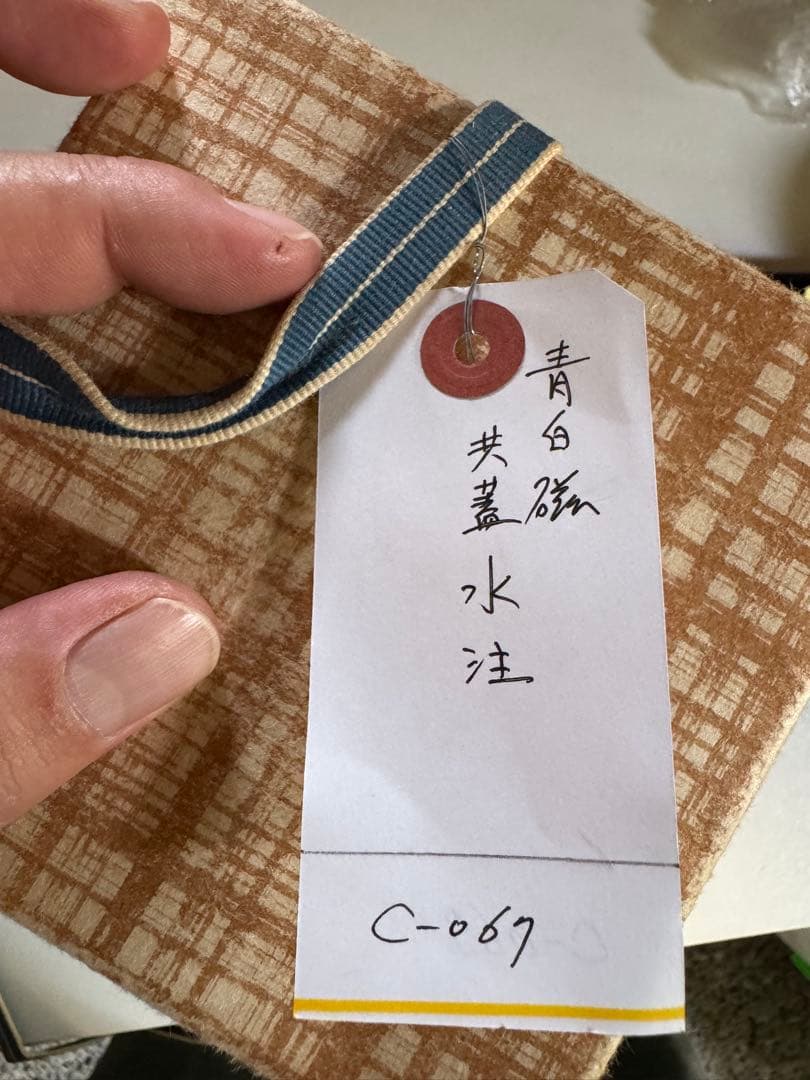 青白磁
共蓋水注
C-067